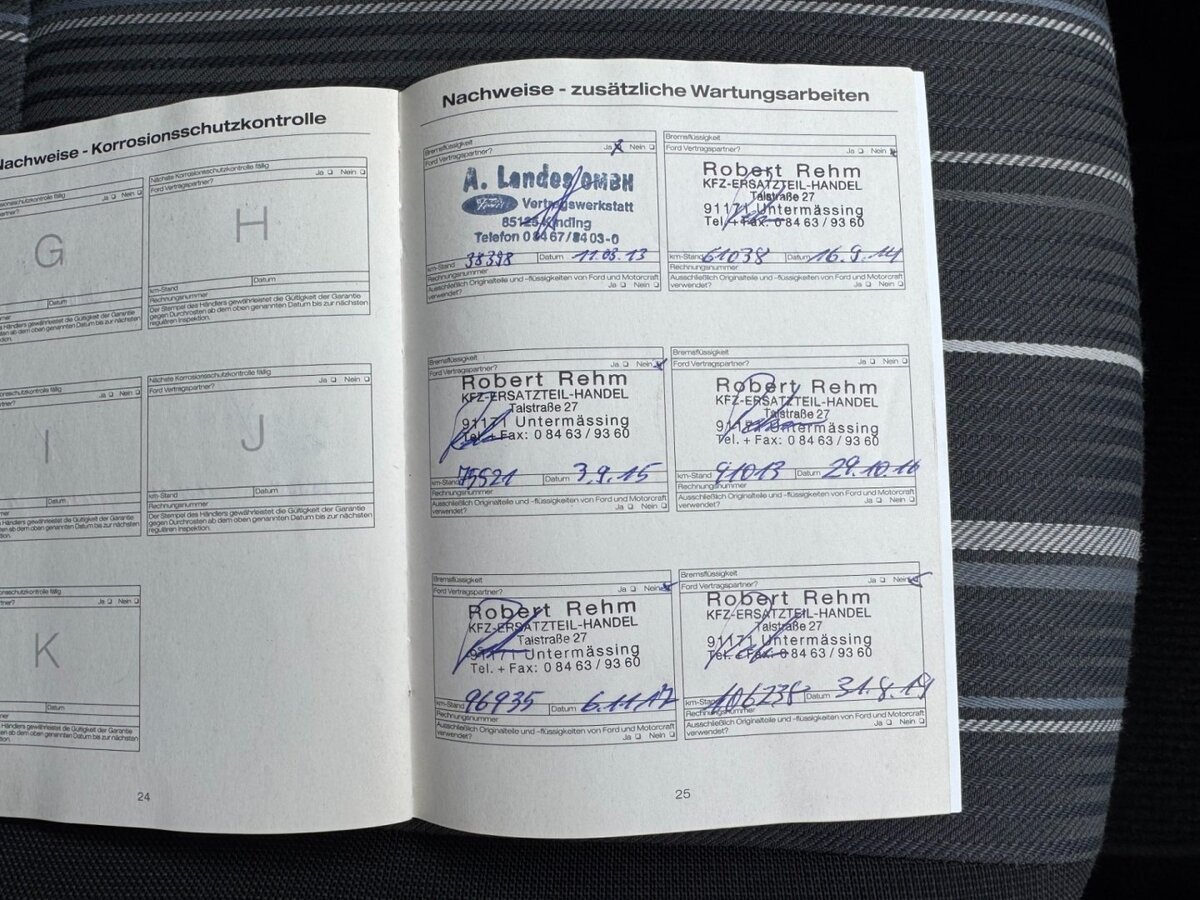 Nachweise - Korrosionsschutzkontrolle
Ja ❑ Nein ❑
G
Datum
Händlers gewährleistet die Gültigkeit der Garantie
ab dem oben genannten Datum bis zur nächsten
Nächste Korrosionsschutzkontrolle fällig
Ford Vertragspartner? Ja ❑ Nein ❑
H
km-Stand Datum
Rechnungsnummer
Der Stempel des Händlers gewährleistet die Gültigkeit der Garantie
gegen Durchrosten ab dem oben genannten Datum bis zur nächsten
regulären Inspektion.
Ja ❑ Nein ❑
I
Datum
Händlers gewährleistet die Gültigkeit der Garantie
ab dem oben genannten Datum bis zur nächsten
Nächste Korrosionsschutzkontrolle fällig
Ford Vertragspartner? Ja ❑ Nein ❑
J
km-Stand Datum
Rechnungsnummer
Der Stempel des Händlers gewährleistet die Gültigkeit der Garantie
gegen Durchrosten ab dem oben genannten Datum bis zur nächsten
regulären Inspektion.
Ja ❑ Nein ❑
K
Datum
Händlers gewährleistet die Gültigkeit der Garantie
ab dem oben genannten Datum bis zur nächsten
24
Nachweise - zusätzliche Wartungsarbeiten
Bremsflüssigkeit
Ford Vertragspartner? Ja ☒ Nein ❑
A. Landes GMBH
Ford Vertragswerkstatt
85125 Kinding
Telefon 0 84 67 / 84 03-0
km-Stand 38398 Datum 11.03.13
Rechnungsnummer
Ausschließlich Originalteile und -flüssigkeiten von Ford und Motorcraft
verwendet? Ja ❑ Nein ❑
Bremsflüssigkeit
Ford Vertragspartner? Ja ❑ Nein ☒
Robert Rehm
KFZ-ERSATZTEIL-HANDEL
Talstraße 27
91171 Untermässing
Tel. + Fax: 0 84 63 / 93 60
km-Stand 61038 Datum 16.9.14
Rechnungsnummer
Ausschließlich Originalteile und -flüssigkeiten von Ford und Motorcraft
verwendet? Ja ❑ Nein ❑
Bremsflüssigkeit
Ford Vertragspartner? Ja ❑ Nein ☒
Robert Rehm
KFZ-ERSATZTEIL-HANDEL
Talstraße 27
91171 Untermässing
Tel. + Fax: 0 84 63 / 93 60
km-Stand 75521 Datum 3.9.15
Rechnungsnummer
Ausschließlich Originalteile und -flüssigkeiten von Ford und Motorcraft
verwendet? Ja ❑ Nein ❑
Bremsflüssigkeit
Ford Vertragspartner? Ja ❑ Nein ❑
Robert Rehm
KFZ-ERSATZTEIL-HANDEL
Talstraße 27
91171 Untermässing
Tel. + Fax: 0 84 63 / 93 60
km-Stand 91013 Datum 29.10.16
Rechnungsnummer
Ausschließlich Originalteile und -flüssigkeiten von Ford und Motorcraft
verwendet? Ja ❑ Nein ❑
Bremsflüssigkeit
Ford Vertragspartner? Ja ❑ Nein ☒
Robert Rehm
KFZ-ERSATZTEIL-HANDEL
Talstraße 27
91171 Untermässing
Tel. + Fax: 0 84 63 / 93 60
km-Stand 96935 Datum 6.11.17
Rechnungsnummer
Ausschließlich Originalteile und -flüssigkeiten von Ford und Motorcraft
verwendet? Ja ❑ Nein ❑
Bremsflüssigkeit
Ford Vertragspartner? Ja ❑ Nein ☒
Robert Rehm
KFZ-ERSATZTEIL-HANDEL
Talstraße 27
91171 Untermässing
Tel. + Fax: 0 84 63 / 93 60
km-Stand 106238 Datum 31.8.19
Rechnungsnummer
Ausschließlich Originalteile und -flüssigkeiten von Ford und Motorcraft
verwendet? Ja ❑ Nein ❑
25